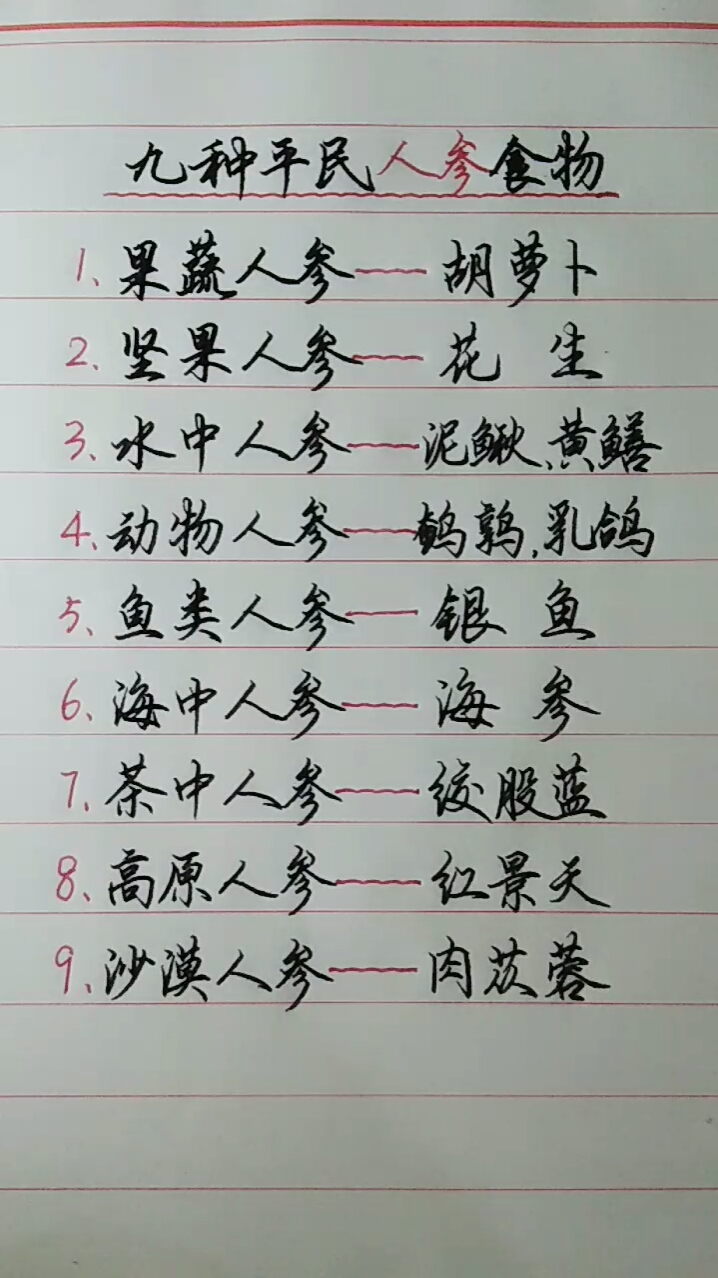 九种平民人参食物
1、果蔬人参——胡萝卜
2、坚果人参——花生
3、水中人参——泥鳅、黄鳝
4、动物人参——鹌鹑,乳鸽
5、鱼类人参——银鱼
6、海中人参——海参
7、茶中人参——绞股蓝
8、高原人参——红景天
9、沙漠人参——肉苁蓉